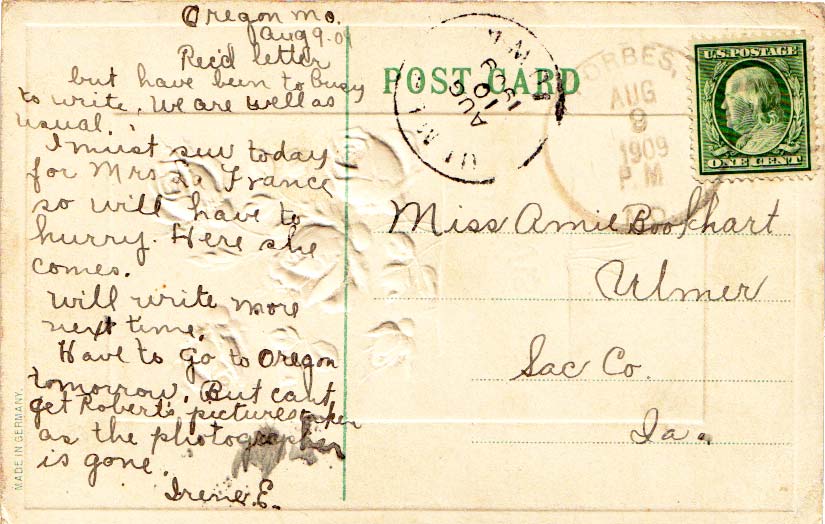 Oregon Mo.
Aug 9. 09
Rec'd letter
but have been to Busy
to write. We are well as
usual.
I must sew today
for Mrs La France
so will have to
hurry. Here she
comes.
Will write more
next time.
Have to go to Oregon
tomorrow. But can't
get Robert's picture taken
as the photographer
is gone.
Irene E.
MADE IN GERMANY.
POST CARD
AUG
1909
FORBES,
AUG
9
1909
P.M
MO.
U.S. POSTAGE
ONE CENT
Miss Amie Bookhart
Ulmer
Sac Co.
Ia.